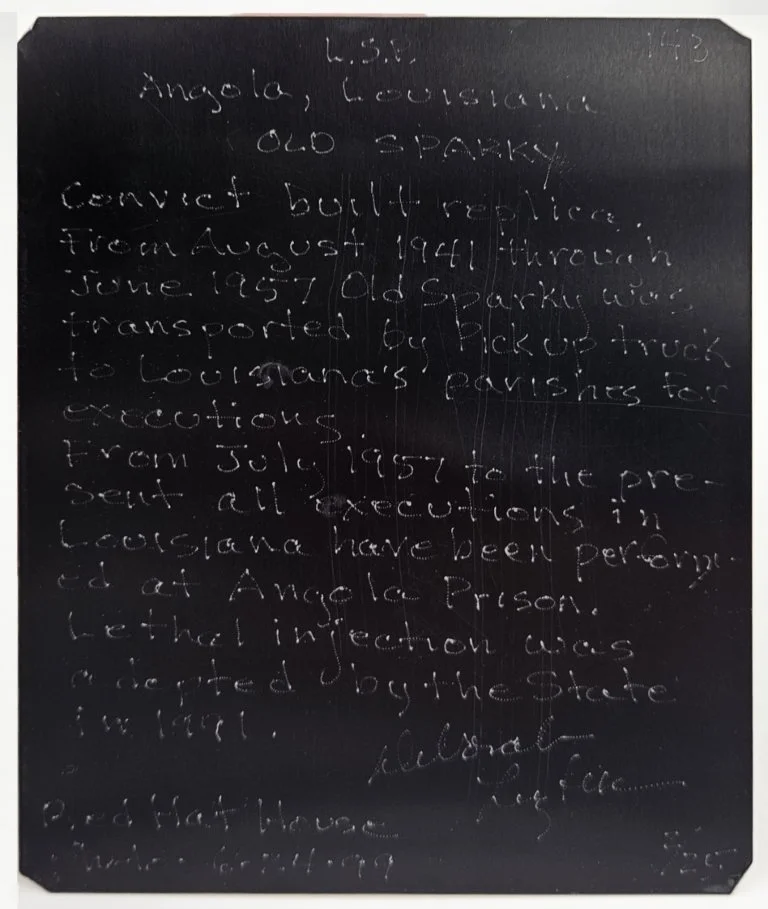 L.S.P. 143
Angola, Louisiana
OLD SPARKY
Convict built replica.
From August 1941 through
June 1957 Old Sparky was
transported by Pick up truck
to Louisiana's parishes for
executions.
From July 1957 to the pre-
sent all executions in
Louisiana have been perform-
ed at Angola Prison.
Lethal injection was
adopted by the State
in 1991.
Deborah
Red Hat House
/25